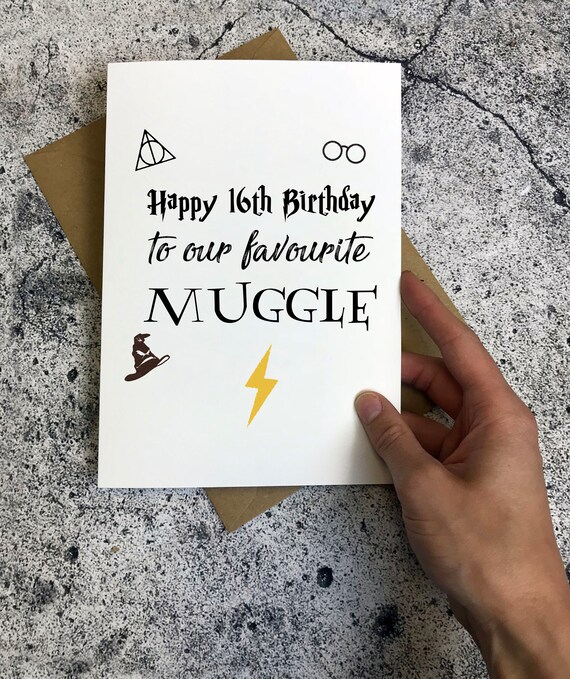 Happy 16th Birthday
to our favourite
MUGGLE